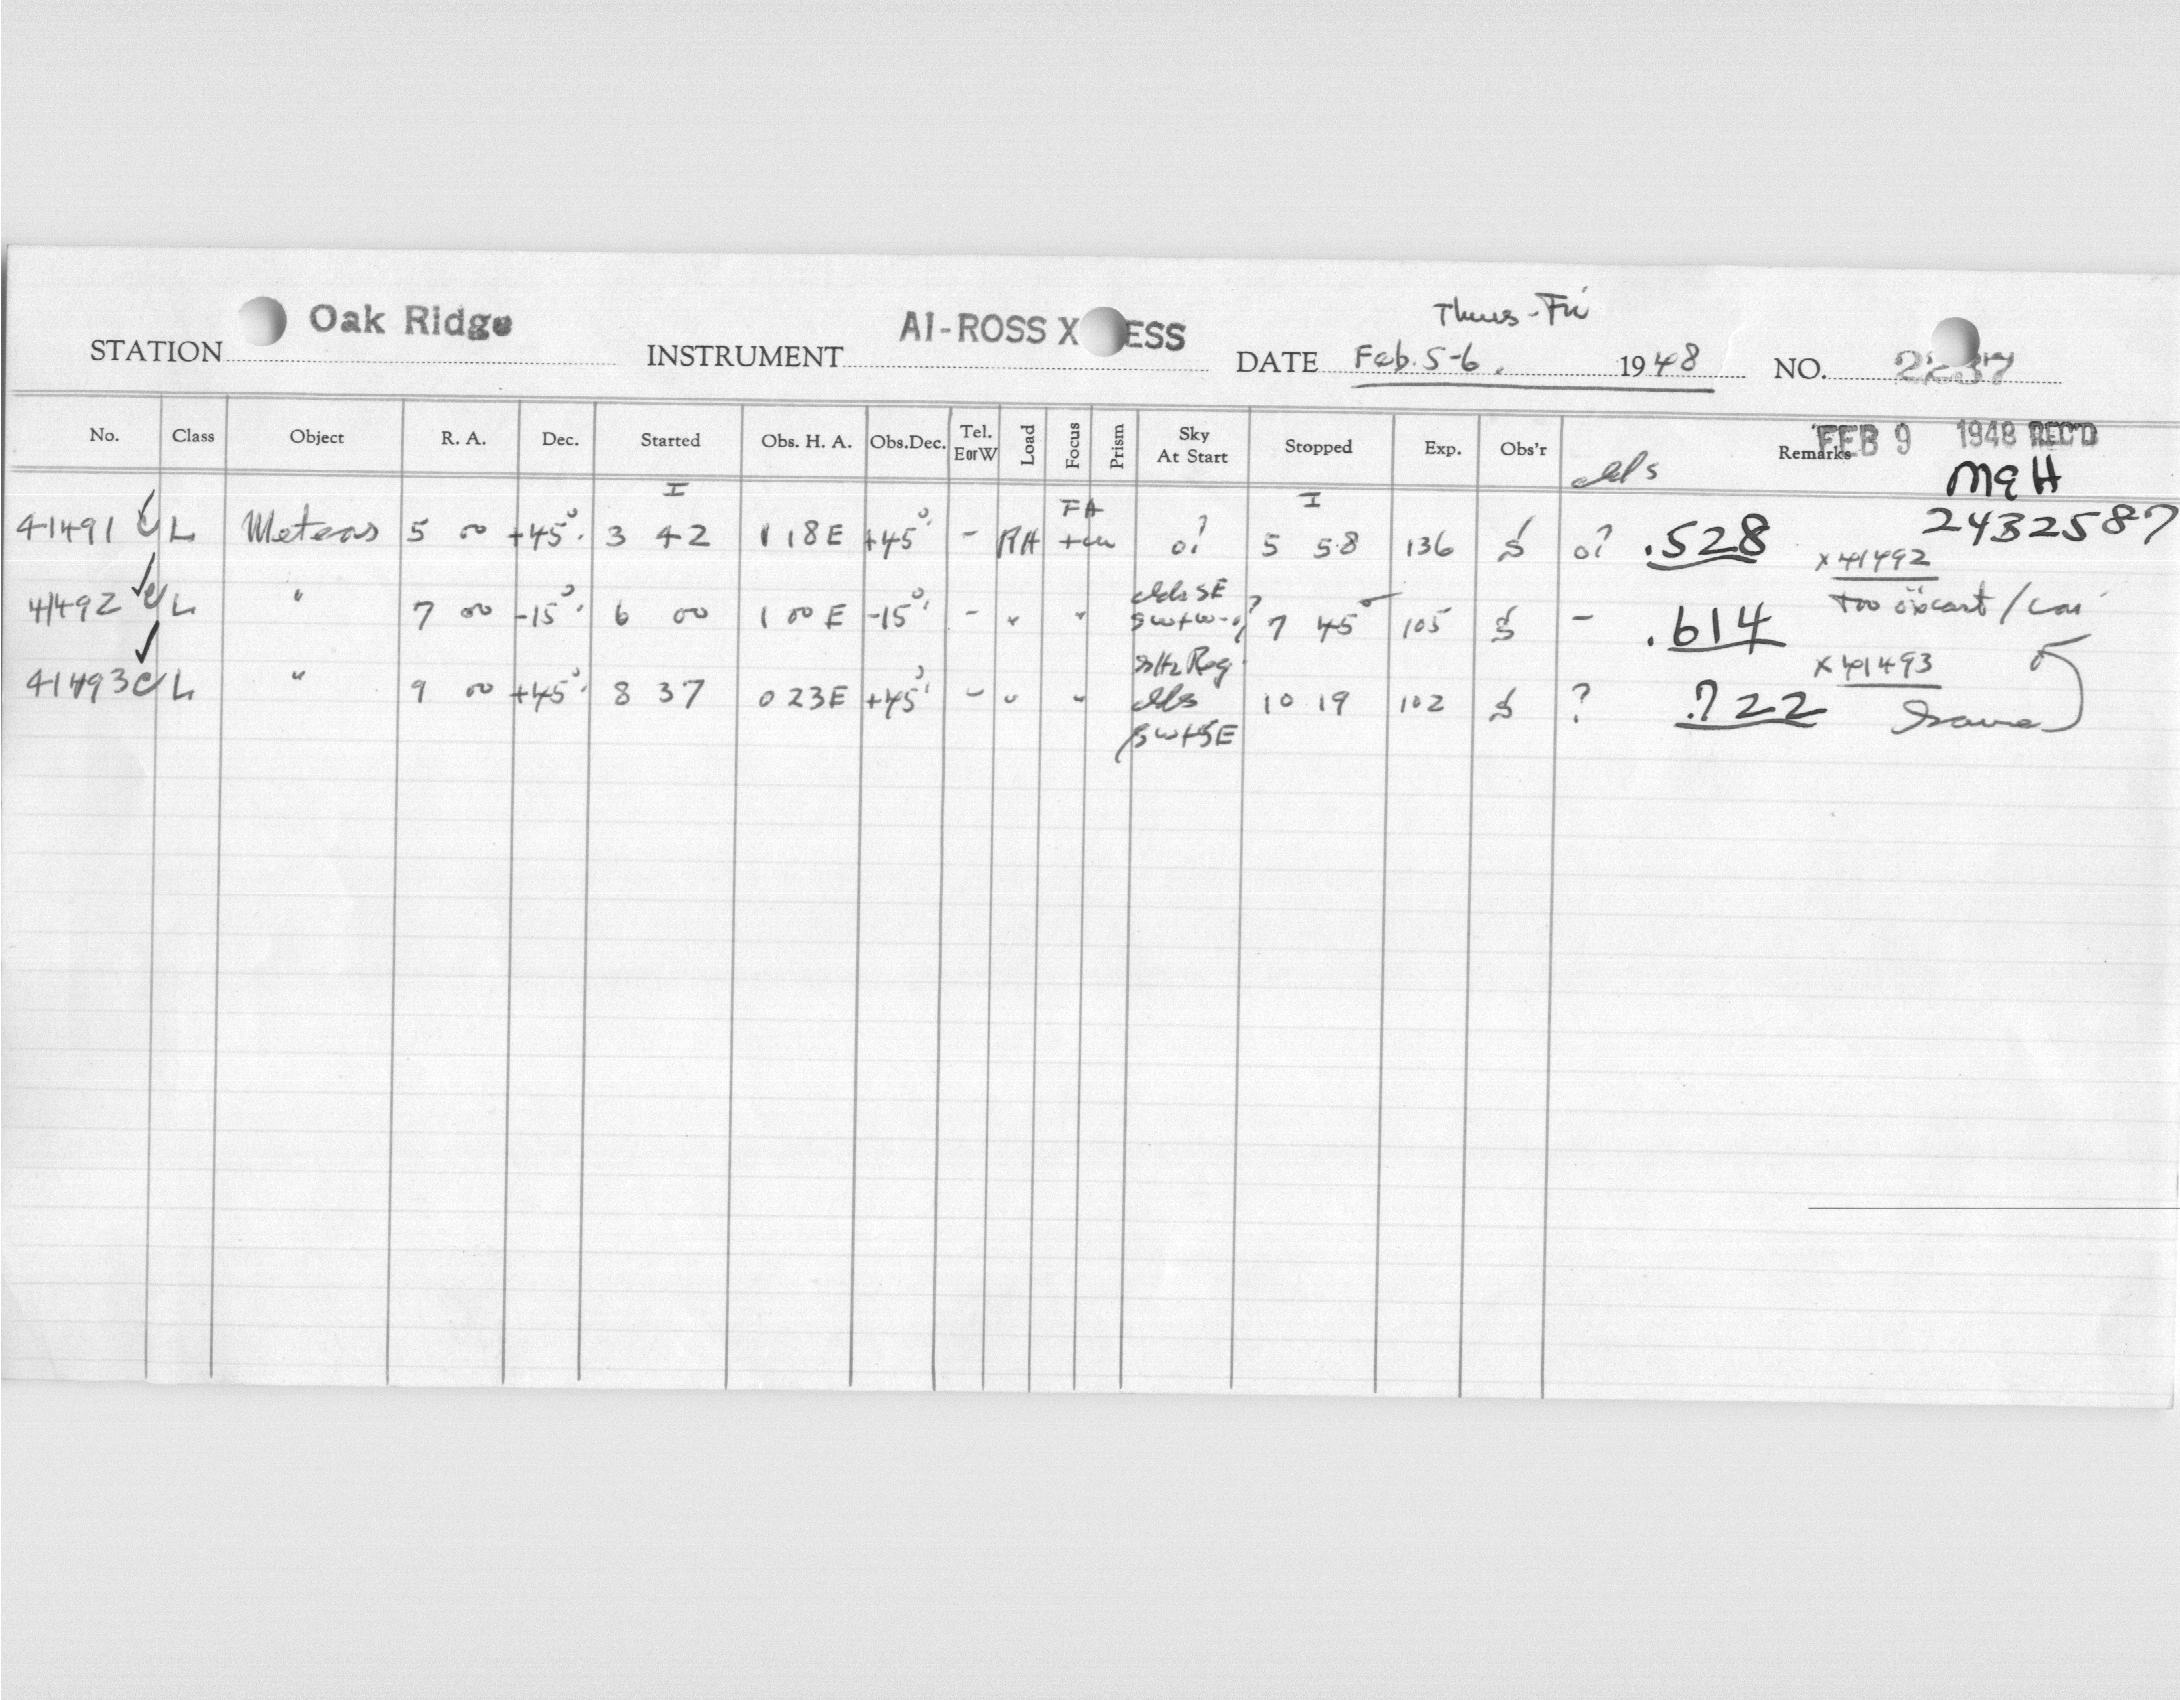 Thurs-Fri
STATION Oak Ridge INSTRUMENT AI-ROSS X ESS DATE Feb. 5-6, 1948 NO. 2237
No. Class Object R. A. Dec. Started Obs. H. A. Obs.Dec. Tel. E or W Load Focus Prism Sky At Start Stopped Exp. Obs'r Remarks
FEB 9 1948 REC'D
clds MqH
I FA I 2432587
41491 L Meteors 5 00 +45° 3 42 1 18E +45° - RH o? 5 58 136 o? .528
x 41492
41492 L " 7 00 -15° 6 00 1 00 E -15° - " " clds SE SW+W 7 45 105 - .614 too
x 41493
41493 L " 9 00 +45° 8 37 0 23E +45° - " " clds SW+SE 10 19 102 ? .722 Same